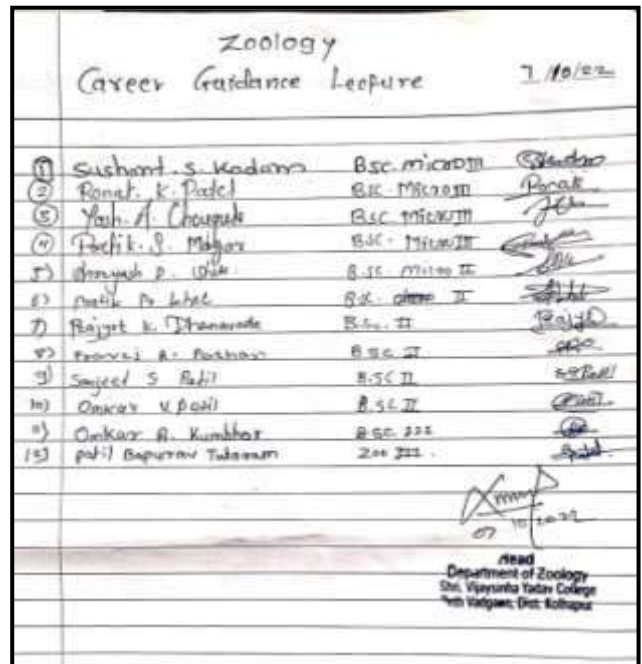 Zoology
Career Guidance Lecture 7/10/22
① Sushant. S. Kadam Bsc. micro III
② Ronak. K. Patel BSC Micro III Ronak
③ Yash. A. Chougule Bsc Micro III
④ Pratik. S. Magar BSC. Micro III
5) P. B.SC Micro II
6) Pratik B.SC. II
7) K. Dhanavade B.Sc. II
8) A. Pathan B.SC II
9) S Patil B.SC II SSPatil
10) Omkar V. Patil B.SC II
11) Omkar A. Kumbhar B.SC. III
12) patil Bapurav Tukaram Zoo III.
07/10/2022
Head
Department of Zoology
Shri. Vijaysinha Yadav College
Peth Vadgaon, Dist. Kolhapur